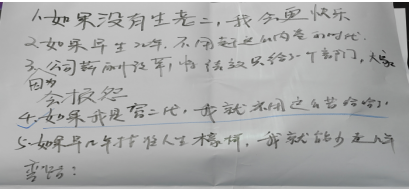 1.如果没有生老二,我会更快乐
2.如果早生20年,不用赶这么内卷的时代.
3.公司薪酬改革,将绩效只给一个部门,大家
因为
会报怨
4.如果我是富二代,我就不用这么苦哈哈.
5.如果早几年抓住人生机会,我就能少走几年
弯路: